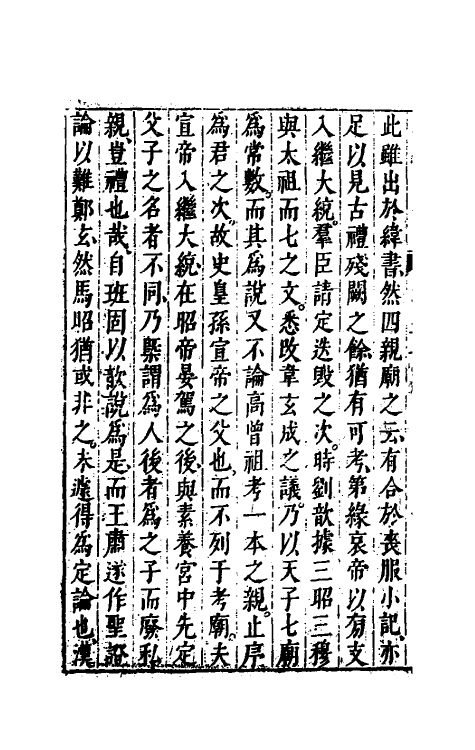 此雖出於緯書、然四親廟之云、有合於喪服小記、亦
足以見古禮殘闕之餘、猶有可考、第緣哀帝以旁支
入繼大統、羣臣請定迭毀之次、時劉歆據三昭三穆
與太祖而七之文、悉改韋玄成之議、乃以天子七廟
為常數、而其為說又不論高曾祖考一本之親、止序
為君之次、故史皇孫宣帝之父也、而不列于考廟、夫
宣帝入繼大統、在昭帝晏駕之後、與素養宮中先定
父子之名者不同、乃槩謂為人後者為之子而廢私
親、豈禮也哉、自班固以歆說為是、而王肅遂作聖證
論以難鄭玄、然馬昭猶或非之。未遽得為定論也、漢